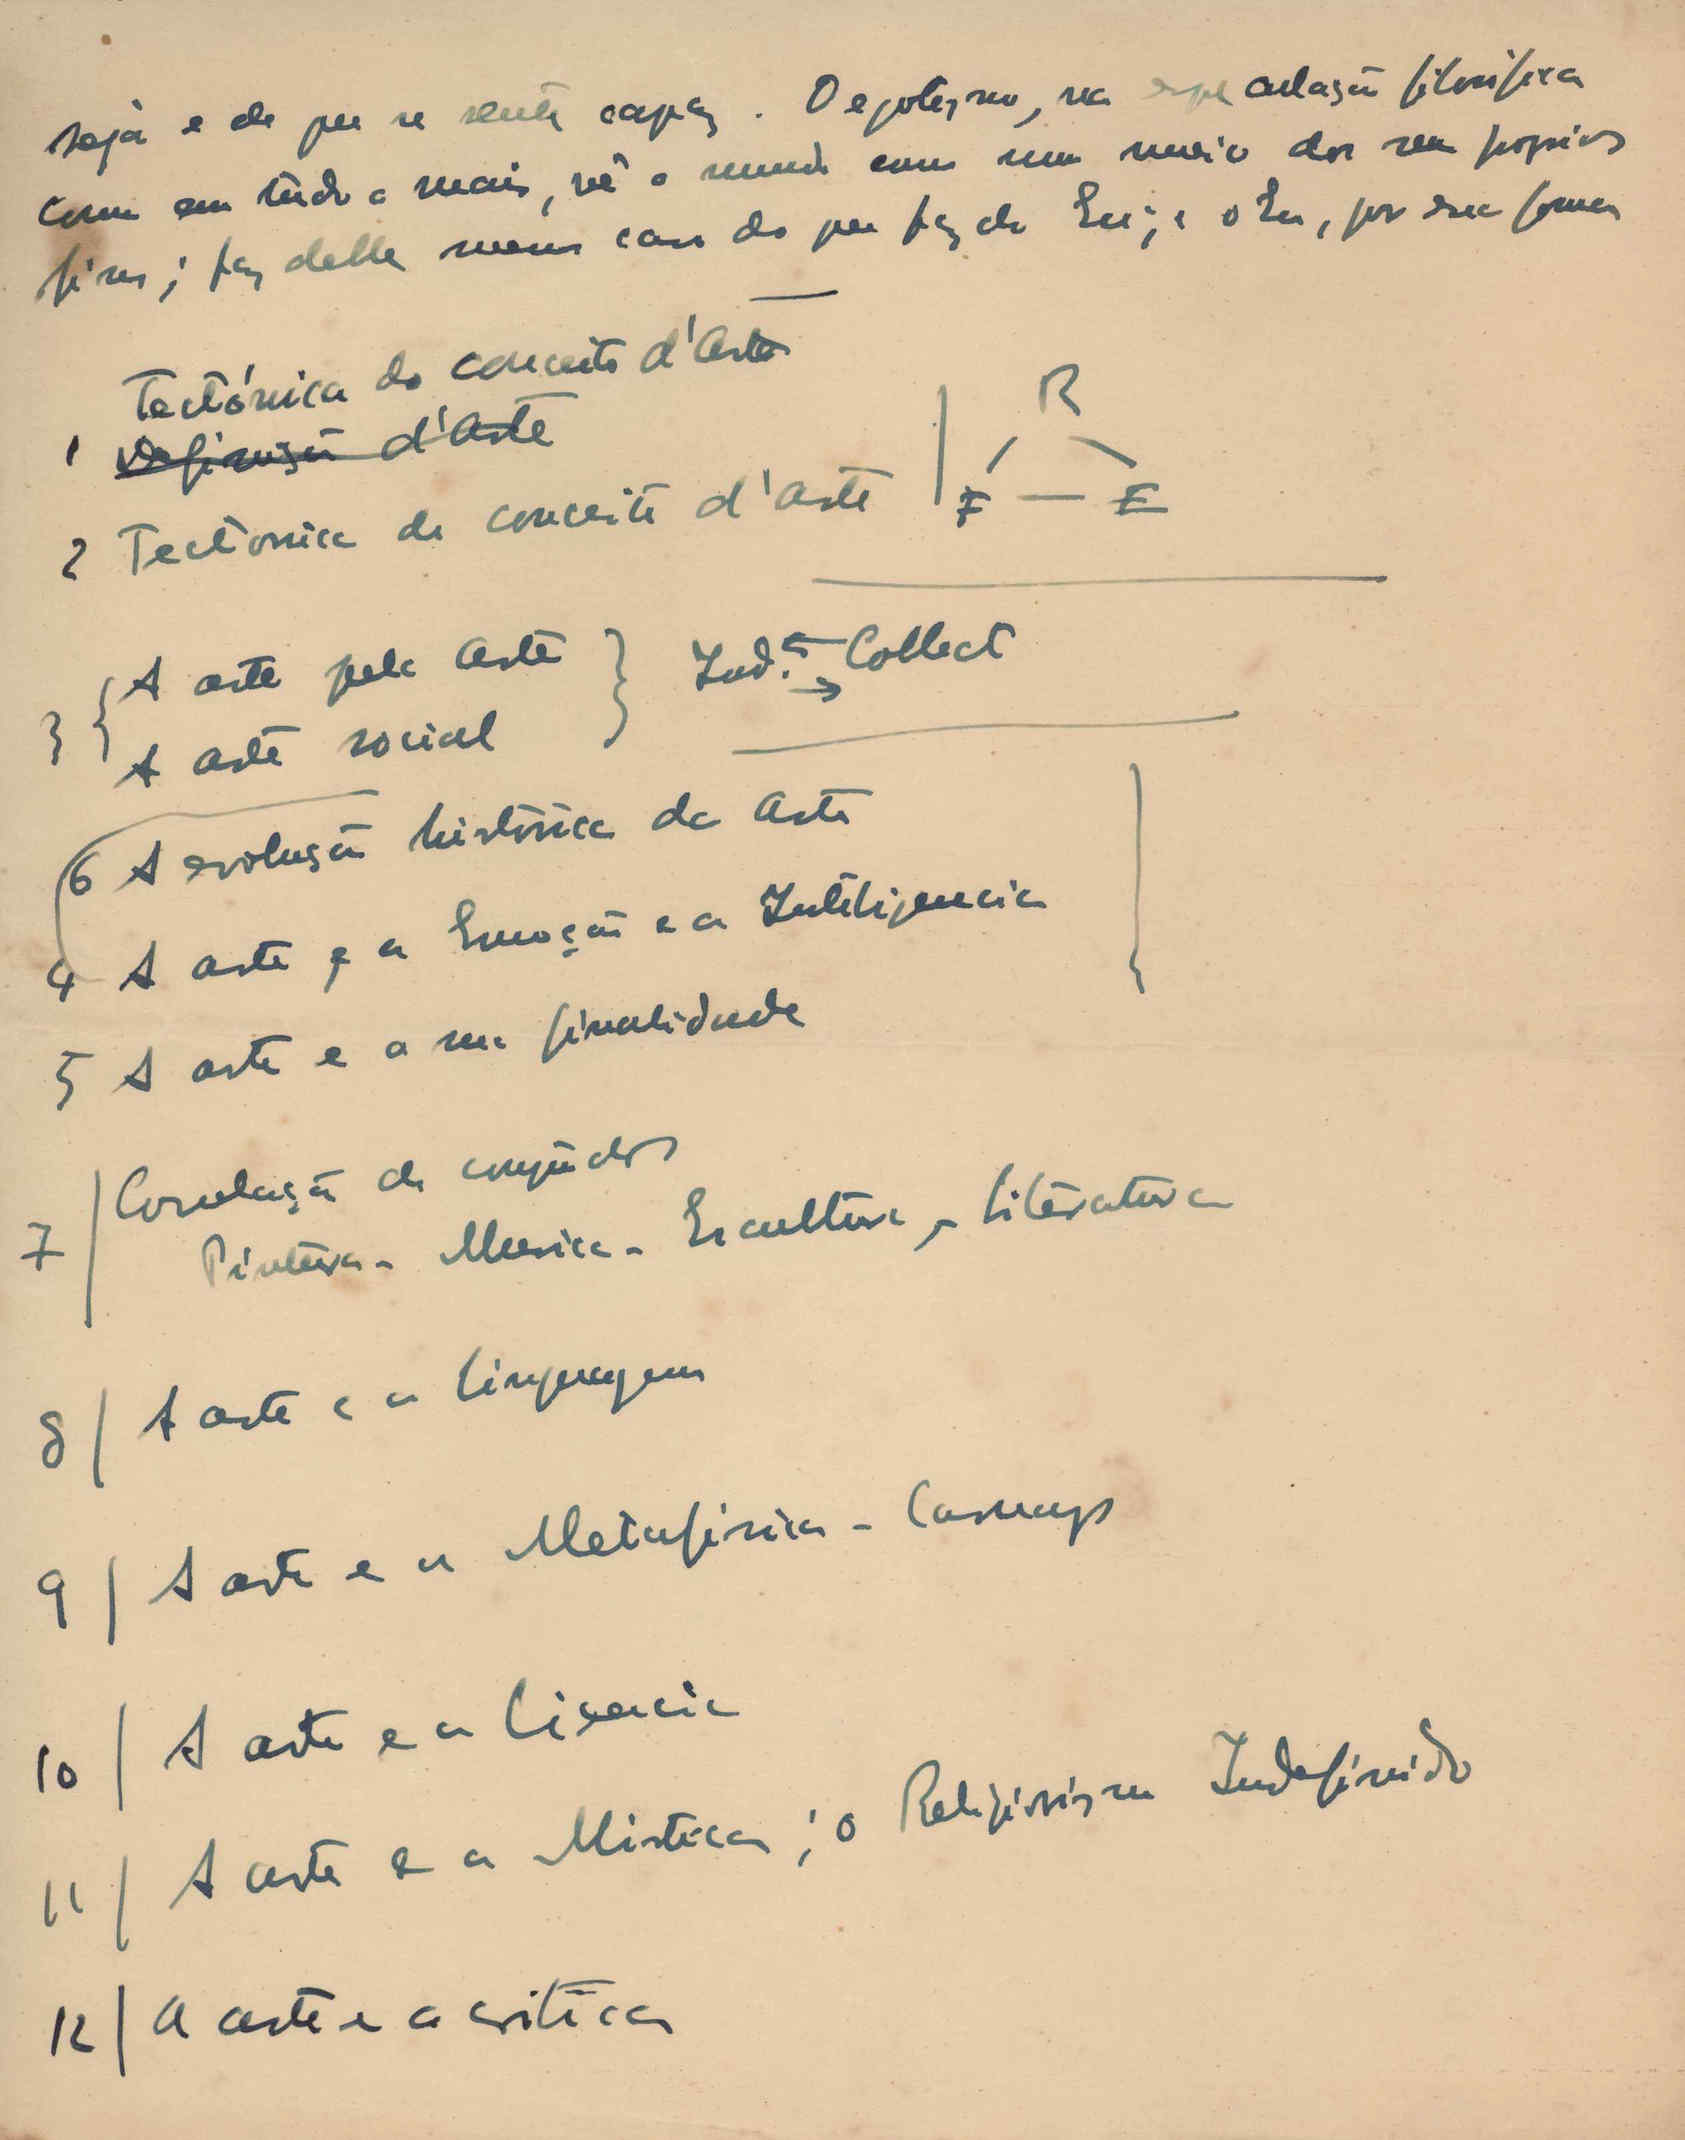 seja e de que se sente capaz. O egotismo, na especulação filosofica
como em tudo o mais, vê o mundo como um meio dos seus proprios
fins; faz delle menos caso do que faz do Eu; e o Eu, por essa forma
Tectónica do conceito d'Arte
1 Definição d'Arte
R
2 Tectonica do conceito d'arte | F — E
3 { A arte pela arte } Ind. ⇄ Collect
A arte social
6 A evolução histórica da arte
4 A arte e a Emoção e a Inteligencia
5 A arte e a sua finalidade
7 | Correlação de conteúdos
Pintura - Musica - Escultura - Literatura
8 | A arte e a linguagem
9 | A arte e a Metafisica - Carnap
10 | A arte e a Ciencia
11 | A arte e a Mistica; o Religiosismo Indefinido
12 | A arte e a critica